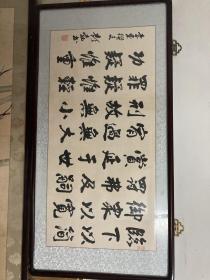 臨下以簡
御眾以寬
罰弗及嗣
賞延于世
宥過無大
刑故無小
罪疑惟輕
功疑惟重